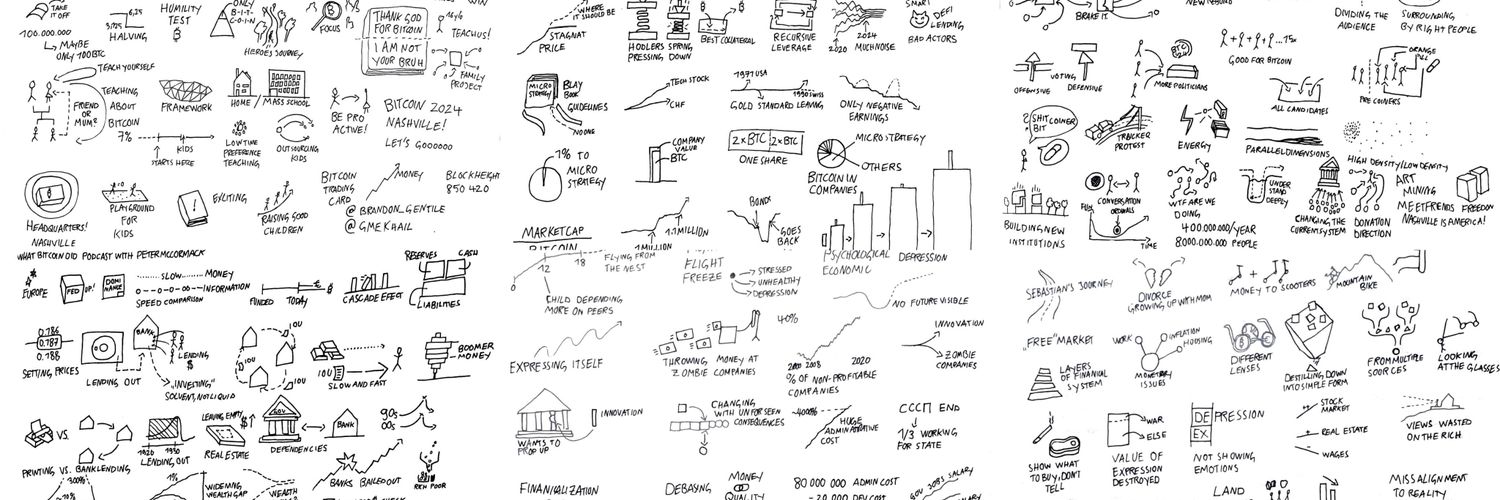 TAKE
IT OFF
100.000.000
MAYBE
ONLY 100 BTC
6,25
3.125
HALVING
HUMILITY
TEST
ONLY
B-I-T-
C-O-I-N
HEROES JOURNEY
FOCUS
THANK GOD
FOR BITCOIN
I AM NOT
YOUR BRUH
TEACH US!
FAMILY
PROJECT
TEACH YOURSELF
FRIEND
OR
MUM?
TEACHING
ABOUT
BITCOIN
7%
STARTS HERE
KIDS
FRAMEWORK
HOME / MASS SCHOOL
LOW TIME
PREFERENCE
TEACHING
OUTSOURCING
KIDS
BE PRO
ACTIVE!
BITCOIN 2024
NASHVILLE!
LET'S GOOOOOO
HEADQUARTERS!
NASHVILLE
PLAYGROUND
FOR
KIDS
EXCITING
RAISING GOOD
CHILDREN
BITCOIN
TRADING
CARD
MONEY
@BRANDON_GENTILE
@GMEKHAIL
BLOCKHEIGHT
850 420
WHAT BITCOIN DID PODCAST WITH PETER MCCORMACK
EUROPE
FED
UP!
DOMI
NANCE
SLOW
MONEY
INFORMATION
SPEED COMPARISON
FUNDED
TODAY
CASCADE EFFECT
RESERVES
CASH
LIABILITIES
0.786
0.787
0.788
SETTING PRICES
LENDING OUT
BANK
LENDING
$
"INVESTING"
SOLVENT, NOT LIQUID
IOU
IOU
IOU
IOU
SLOW AND FAST
BOOMER
MONEY
VS.
PRINTING VS. BANKLENDING
1920
1930
LENDING OUT
LEAVING EMPTY
REAL ESTATE
GOV
BANK
DEPENDENCIES
90s
00s
BANKS BAILED OUT
RICH POOR
300%
70%
1%
WIDENING
WEALTH GAP
WEALTH
WHERE
IT SHOULD BE
STAGNAT
PRICE
HODLERS
PRESSING
SPRING
DOWN
BEST COLLATERAL
RECURSIVE
LEVERAGE
2020
2024
MUCH NOISE
SMART
DEFI
LENDING
BAD ACTORS
MICRO
STRATEGY
BLAY
BOOK
GUIDELINES
NO ONE
TECH STOCK
CHF
1971 USA
1990 SWISS
GOLD STANDARD LEAVING
ONLY NEGATIVE
EARNINGS
1% TO
MICRO
STRATEGY
COMPANY
VALUE
BTC
2x BTC 2x BTC
ONE SHARE
MICROSTRATEGY
OTHERS
BITCOIN IN
COMPANIES
MARKETCAP
BITCOIN
1.1 MILLION
1 MILLION
BONDS
GOES
BACK
12
18
FLYING FROM
THE NEST
CHILD DEPENDING
MORE ON PEERS
FLIGHT
FREEZE
STRESSED
UNHEALTHY
DEPRESSION
PSYCHOLOGICAL DEPRESSION
ECONOMIC
NO FUTURE VISIBLE
EXPRESSING ITSELF
THROWING MONEY AT
ZOMBIE COMPANIES
40%
2000
2008
2020
% OF NON-PROFITABLE
COMPANIES
INNOVATION
ZOMBIE
COMPANIES
WANTS TO
PROP UP
INNOVATION
CHANGING
WITH UNFORSEEN
CONSEQUENCES
4000%
HUGE
ADMINISTRATIVE
COST
CCCП END
1/3 WORKING
FOR STATE
FINANCIALIZATION
DEBASING
MONEY
QUALITY
80 000 000 ADMIN COST
GOV JOBS SALARY
BRAKE IT
DIVIDING THE
AUDIENCE
SURROUNDING
BY RIGHT PEOPLE
OFFENSIVE
VOTING
DEFENSIVE
BTC
2024
MORE POLITICIANS
...15x
GOOD FOR BITCOIN
ALL CANDIDATES
ORANGE
PILL
PRE COINERS
SHITCOINER
BIT
TRUCKER
PROTEST
ENERGY
PARALLEL DIMENSIONS
HIGH DENSITY/LOW DENSITY
BUILDING NEW
INSTITUTIONS
CONVERSATION
ORDINALS
FUN
TIME
WTF ARE WE
DOING
400.000.000/YEAR
8000.000.000 PEOPLE
UNDER
STAND
DEEPLY
CHANGING THE
CURRENT SYSTEM
DONATION
DIRECTION
ART
MINING
MEET FRIENDS
NASHVILLE IS AMERICA!
FREEDOM
SEBASTIAN'S JOURNEY
DIVORCE
GROWING UP WITH MOM
MONEY TO SCOOTERS
MOUNTAIN
BIKE
"FREE" MARKET
WORK
INFLATION
HOUSING
MONETARY
ISSUES
LAYERS
OF FINANCIAL
SYSTEM
DIFFERENT
LENSES
DESTILLING DOWN
INTO SIMPLE FORM
FROM MULTIPLE
SOURCES
LOOKING
AT THE GLASSES
SHOW WHAT
TO BUY, DON'T
TELL
WAR
ELSE
VALUE OF
EXPRESSION
DESTROYED
DE PRESSION
EX
NOT SHOWING
EMOTIONS
STOCK
MARKET
REAL ESTATE
WAGES
VIEWS WASTED
ON THE RICH
LAND
MISSALIGNMENT
TO REALITY